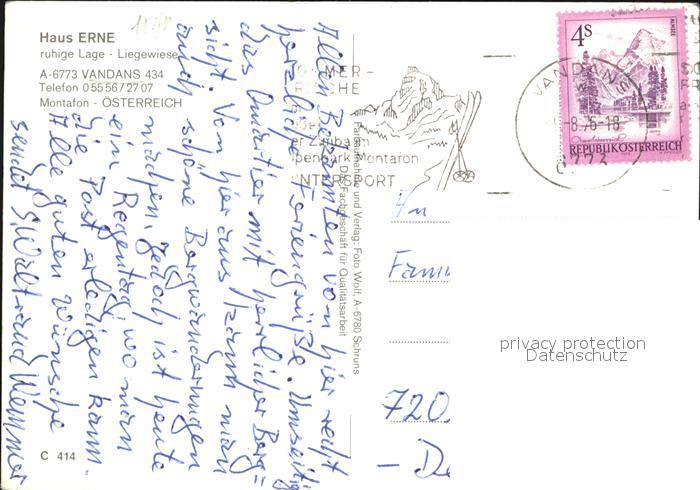 Haus ERNE
ruhige Lage - Liegewiese
A-6773 VANDANS 434
Telefon 0 55 56 / 27 07
Montafon - ÖSTERREICH
Allen Bekannten von hier recht
herzliche Feriengrüße. Umseitig
das Quartier mit herrlicher Berg=
sicht. Von hier aus kann man
auch schöne Bergwanderungen
machen. Jedoch ist heute
ein Regentag, wo man
die Post erledigen kann.
Alle guten Wünsche
sendet S. Waltraud
C 414
Farbaufnahme und Verlag: Foto Wolf, A-6780 Schruns
Das Fachgeschäft für Qualitätsarbeit
MER-
HE
er Zimba im
penpark Montafon
INTERSPORT
4S
ALMSEE
REPUBLIK ÖSTERREICH
VANDANS
8.76-18
6773
An
Fami
720
- De
privacy protection
Datenschutz